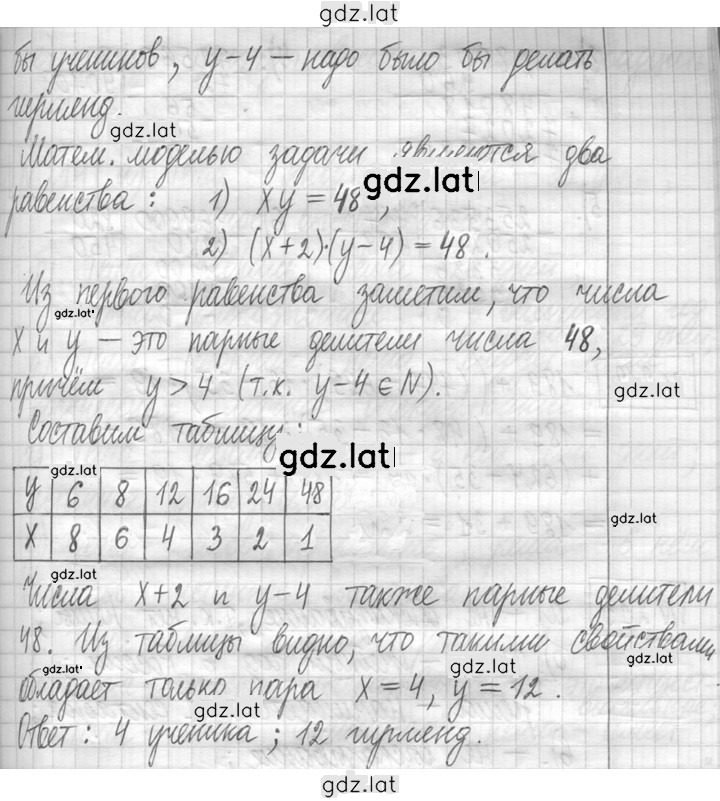 gdz.lat
бы учеников, y-4 — надо было бы делать
гирлянд.
gdz.lat
Матем. моделью задачи являются два
gdz.lat
равенства: 1) xy = 48,
2) (x+2)·(y-4) = 48.
Из первого равенства заметим, что числа
gdz.lat
x и y — это парные делители числа 48,
причём y > 4 (т.к. y-4 ∈ N).
gdz.lat
Составим таблицу:
gdz.lat
gdz.lat
y 6 8 12 16 24 48
x 8 6 4 3 2 1
gdz.lat
gdz.lat
Числа x+2 и y-4 также парные делители
48. Из таблицы видно, что такими свойствами
gdz.lat gdz.lat gdz.lat
обладает только пара x = 4, y = 12.
gdz.lat
Ответ: 4 ученика; 12 гирлянд.
gdz.lat